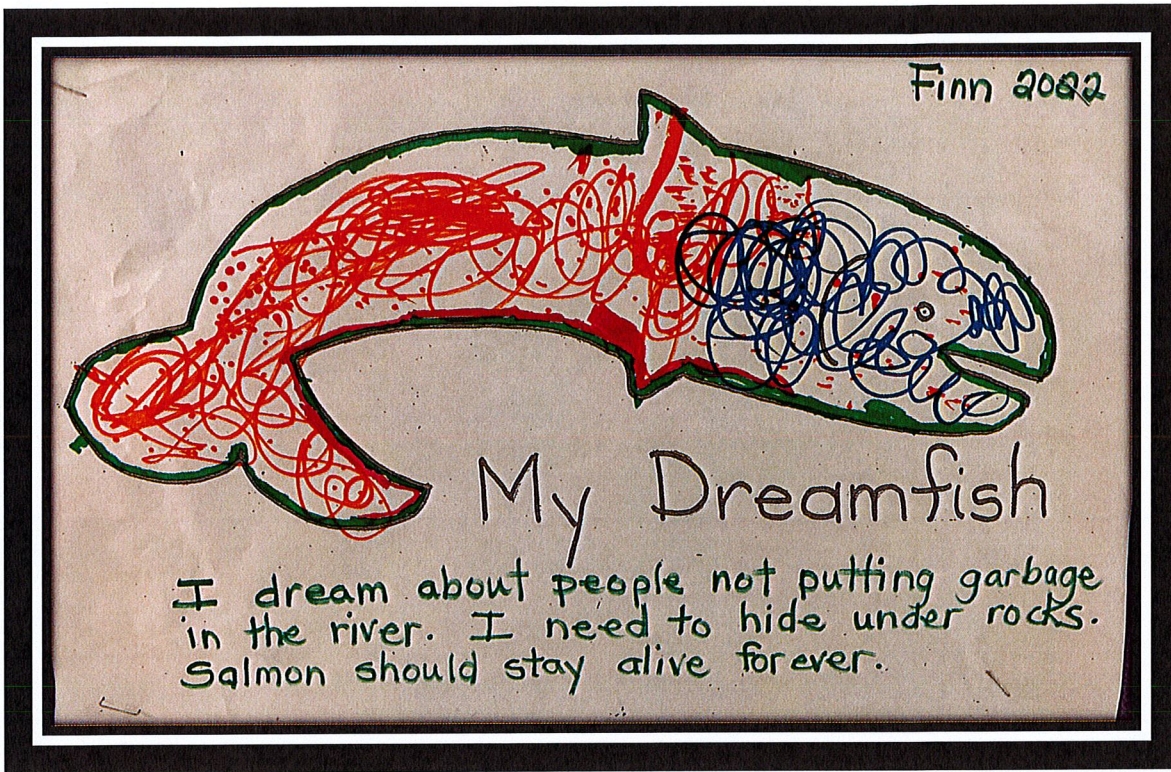 Finn 2022
My Dreamfish
I dream about people not putting garbage
in the river. I need to hide under rocks.
Salmon should stay alive forever.